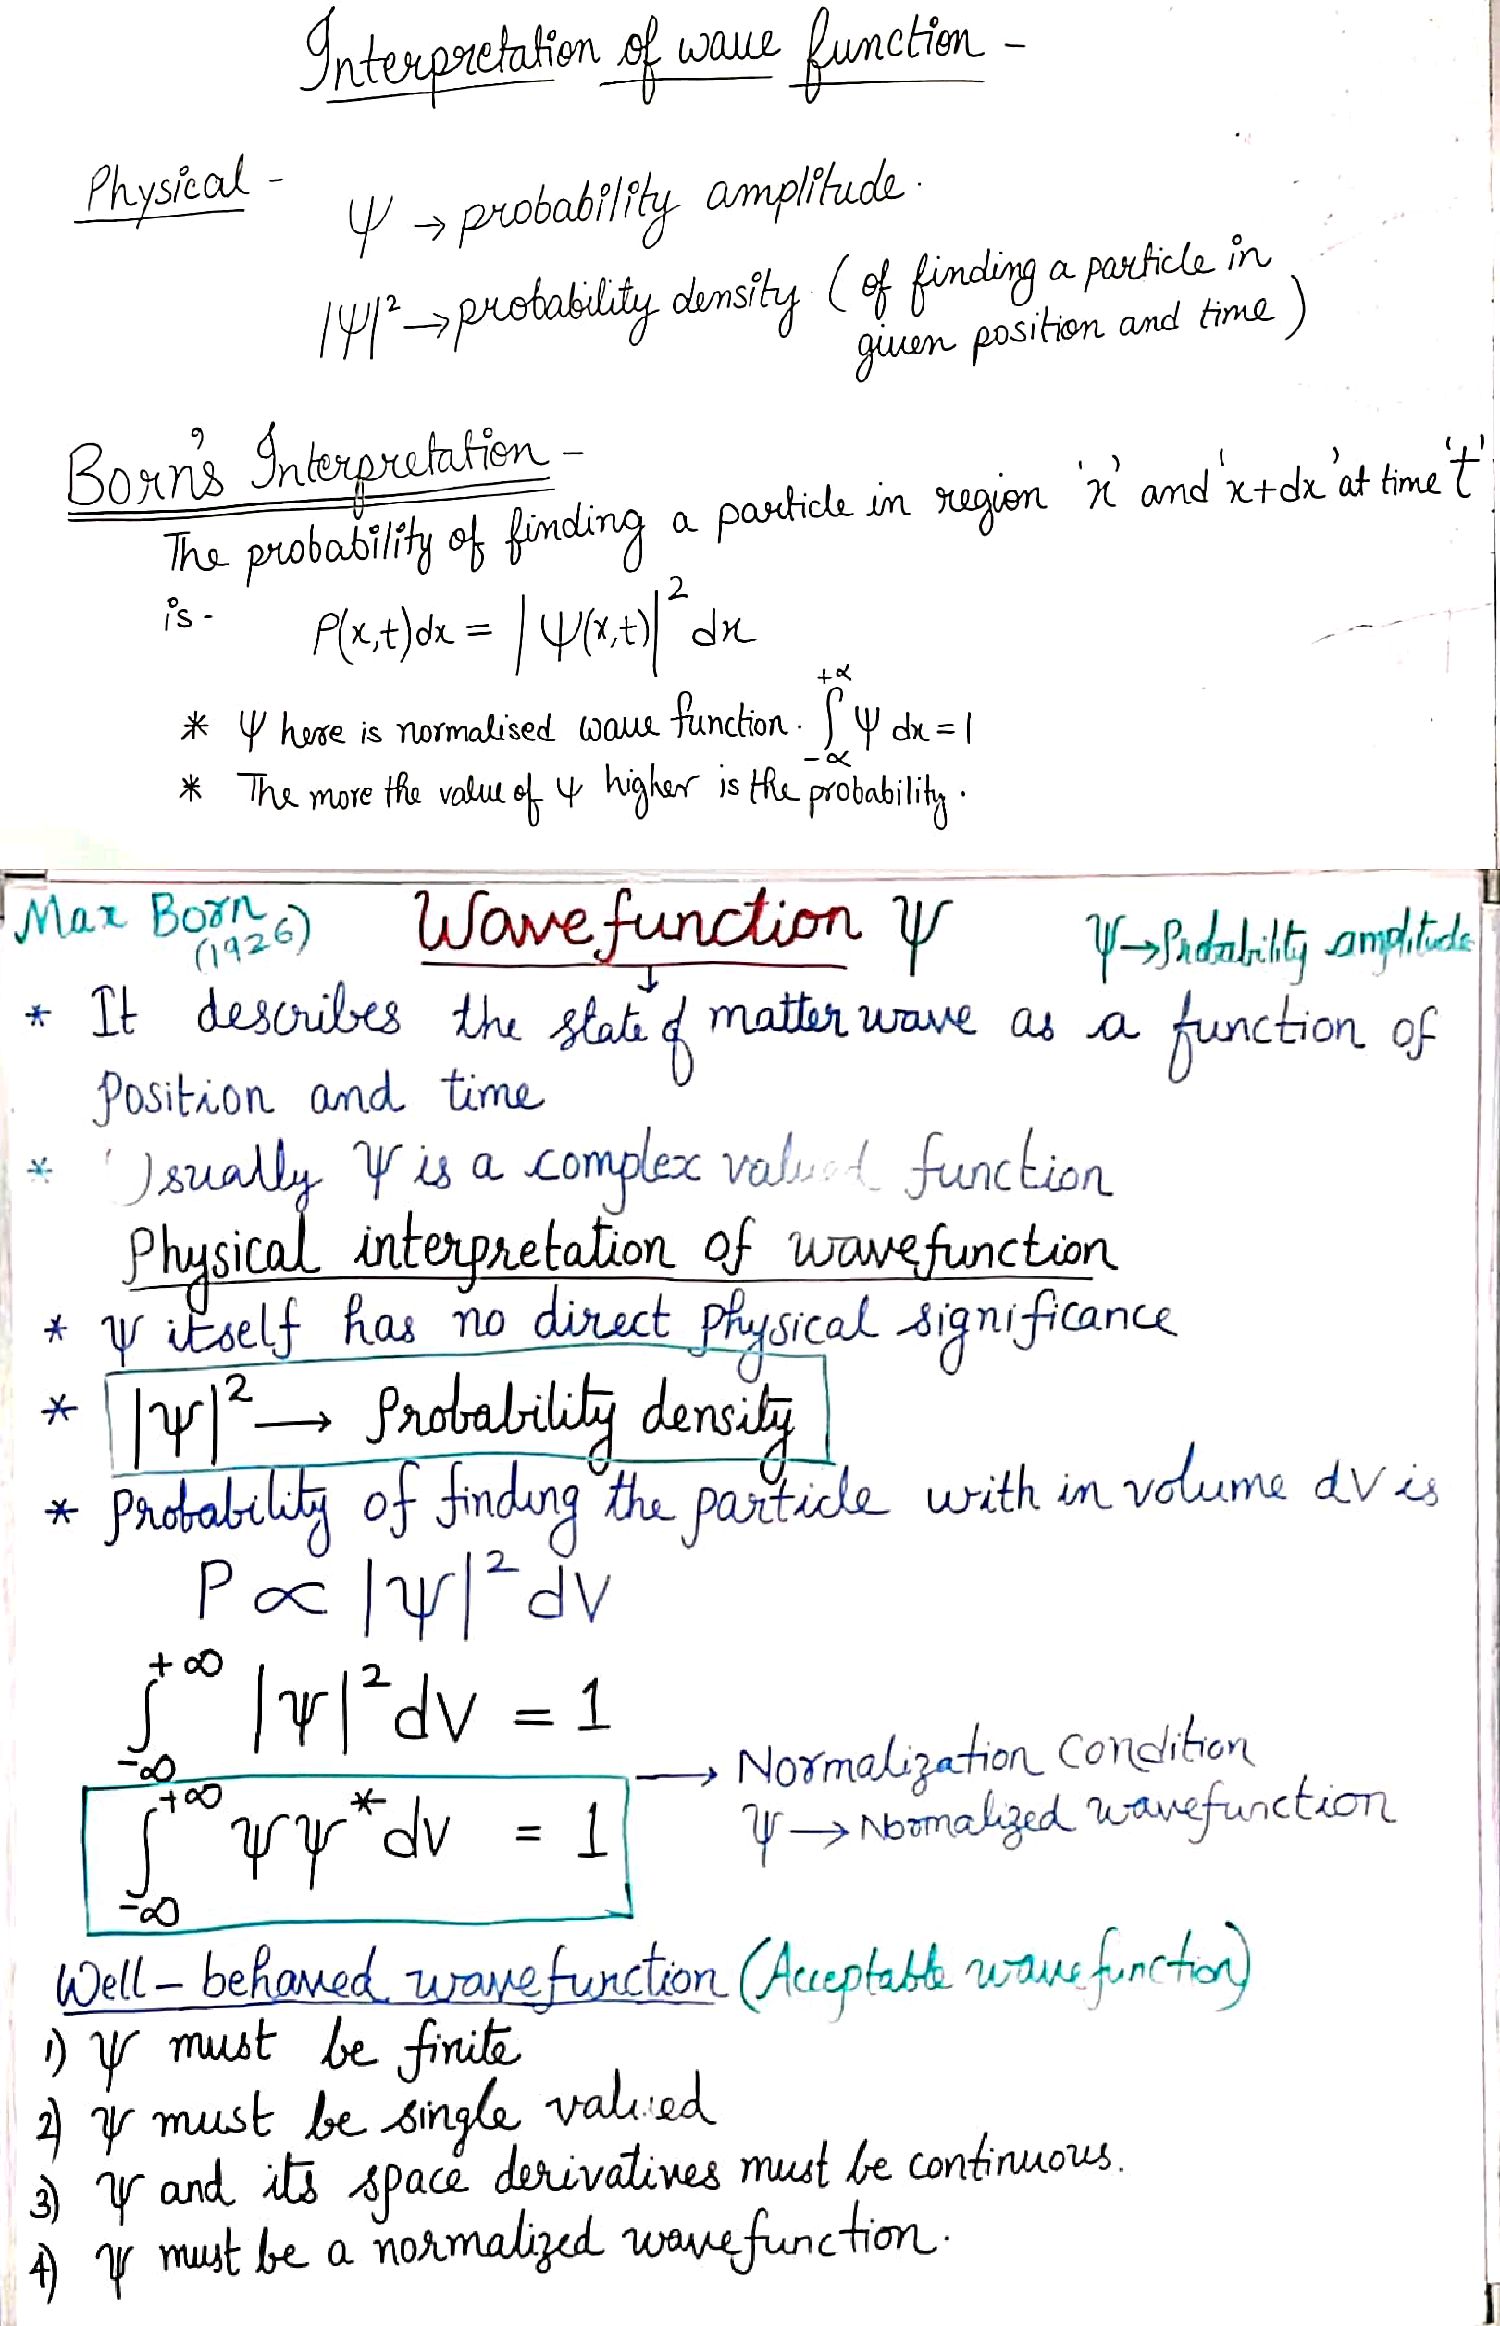 Interpretation of wave function -
Physical - ψ → probability amplitude.
|ψ|² → probability density (of finding a particle in
given position and time)
Born's Interpretation -
The probability of finding a particle in region 'x' and 'x+dx' at time 't'
is - P(x,t)dx = |ψ(x,t)|² dx
* ψ here is normalised wave function. ∫ ψ dx = 1 (+α, -α)
* The more the value of ψ higher is the probability.
Max Born (1926) Wavefunction ψ ψ→Probability amplitude
* It describes the state of matter wave as a function of
Position and time
* Usually ψ is a complex valued function
Physical interpretation of wavefunction
* ψ itself has no direct physical significance
* |ψ|² → Probability density
* Probability of finding the particle with in volume dv is
P ∝ |ψ|² dv
+∞ ∫ -∞ |ψ|² dv = 1
+∞ ∫ -∞ ψψ* dv = 1 → Normalization condition
ψ → Normalized wavefunction
Well-behaved wavefunction (Acceptable wavefunction)
1) ψ must be finite
2) ψ must be single valued
3) ψ and its space derivatives must be continuous.
4) ψ must be a normalized wavefunction.